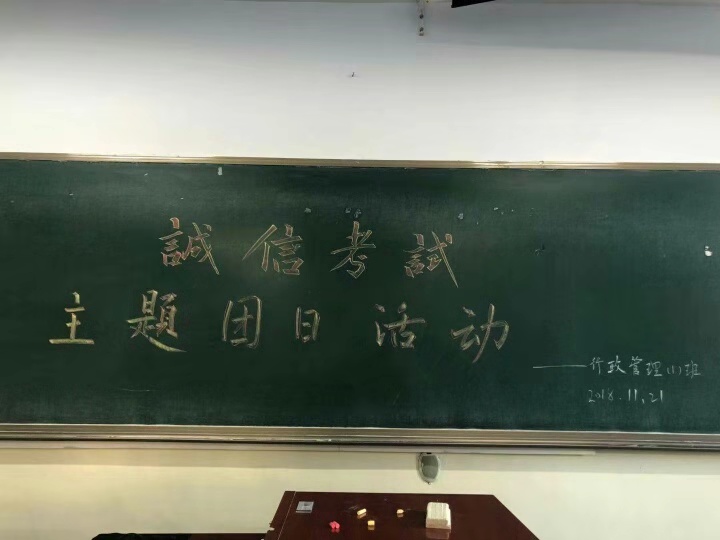 誠信考試
主題团日活动
——行政管理(1)班
2018.11.21